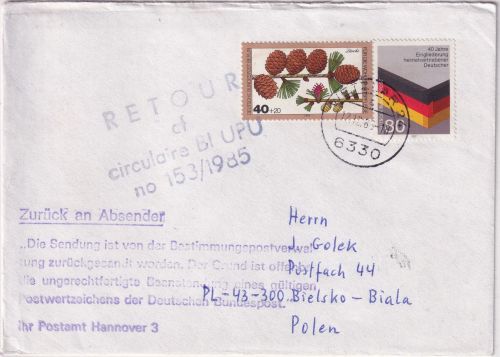 40+20
40 Jahre
Eingliederung
heimatvertriebener
Deutscher
80
6330
RETOUR
cf
circulaire BI UPU
no 153/1985
Zurück an Absender
„Die Sendung ist von der Bestimmungspostverwal-
tung zurückgesandt worden. Der Grund ist offenbar
die ungerechtfertigte Beanstandung eines gültigen
Postwertzeichens der Deutschen Bundespost."
Ihr Postamt Hannover 3
Herrn
J. Golek
Postfach 44
PL-43-300 Bielsko-Biala
Polen